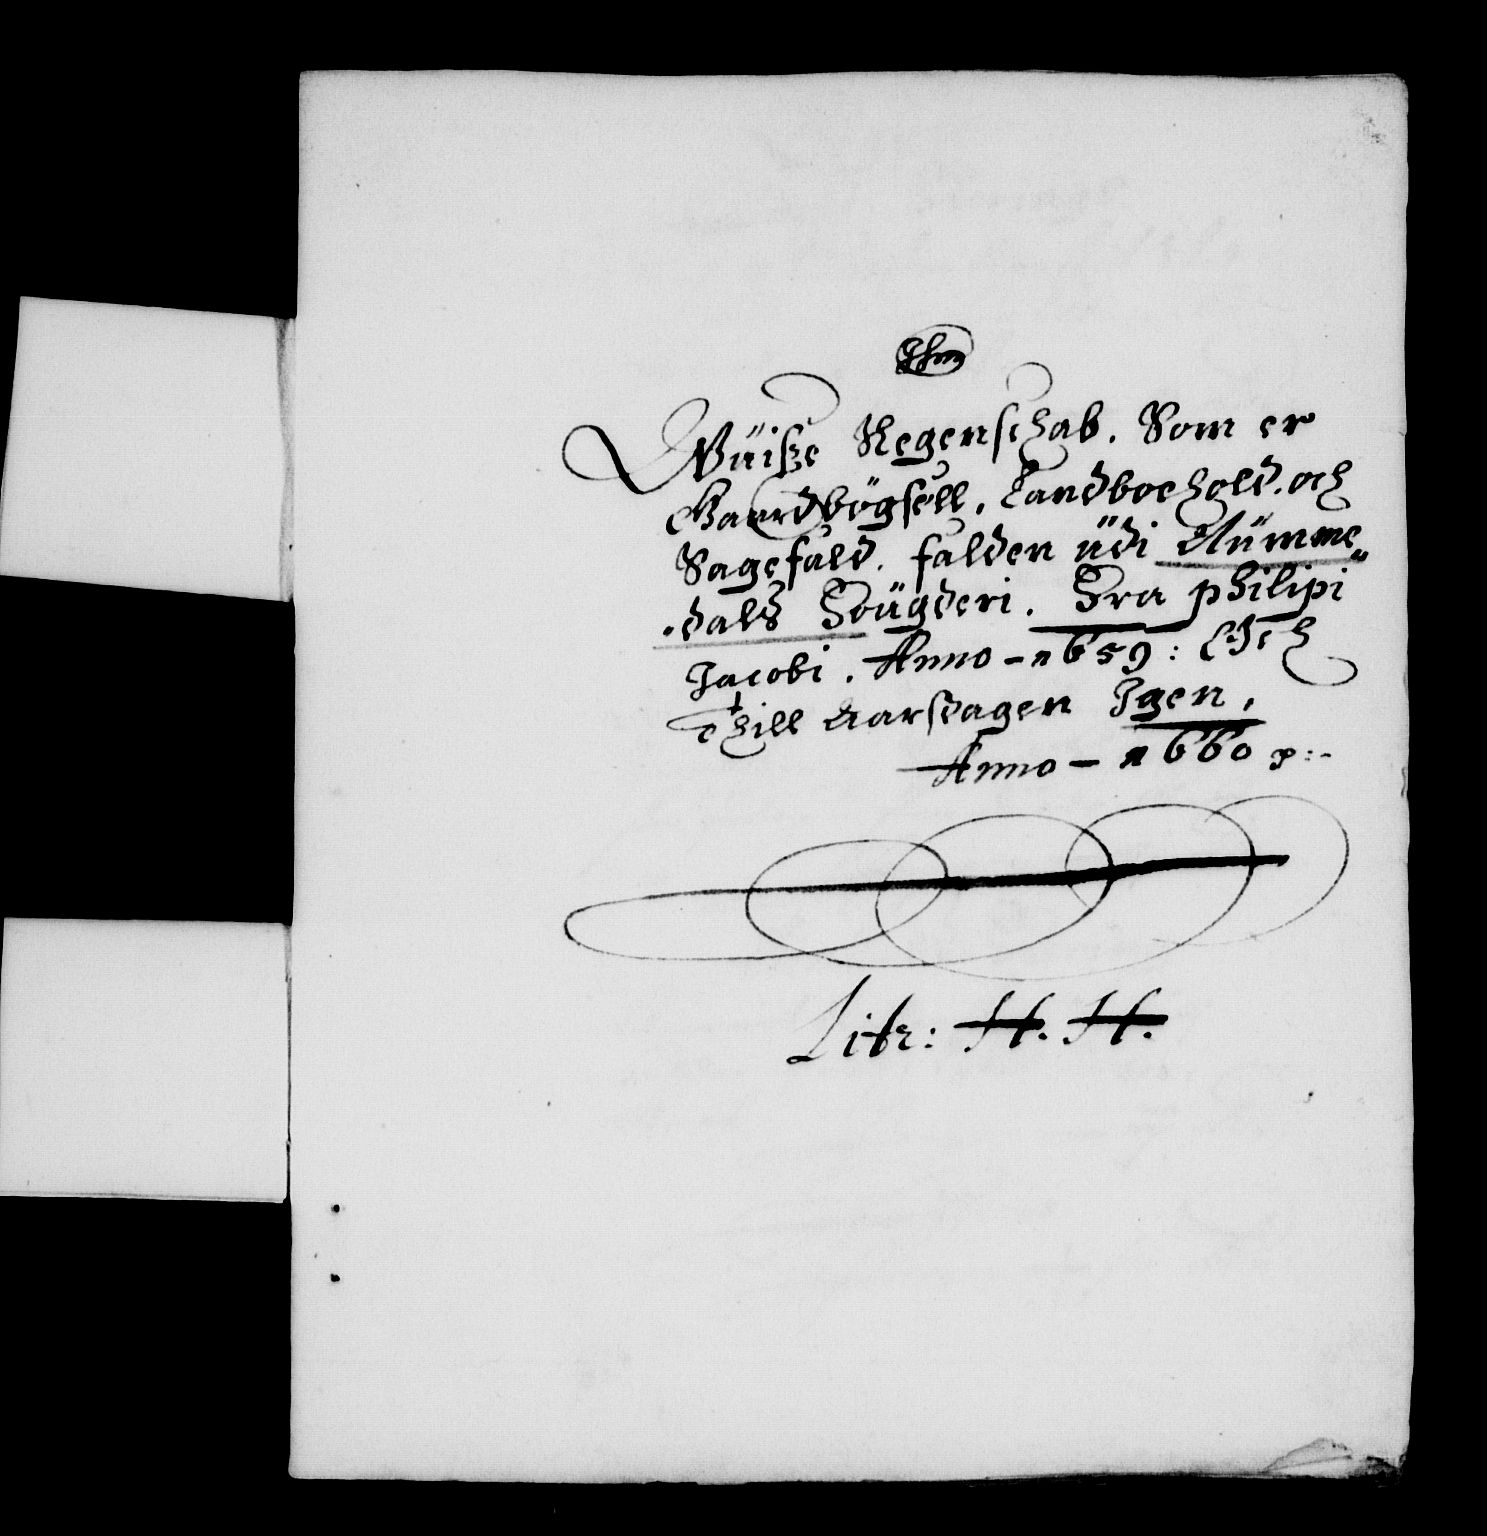 Ihm
Wüisze Regenschab. Som er
Gaardbögsell. Landboehold. och
Sagefald. falden üdi Nümme„
.dals Foügderi. Fra philipi
Jacobi. Anno – 1659: Och
Thill Aarsdagen Igen.
Anno – 1660 p:-
Litr: H. H.